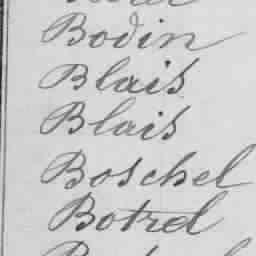 Bodin
Blais
Blais
Boschel
Botrel